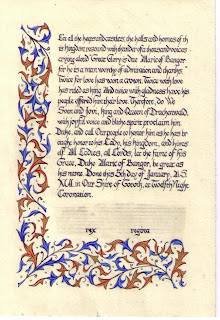 Let all the hagers and castles, the halls and homes of th
is kingdom resound with thunder of a thousand voices
crying aloud Great Glory is due Alaric of Bangor
for he is a man worthy of admiration and thanks.
Twice for love has won a crown. Twice with love
has ruled as king. And twice with gladness have his
people offered him their love. Therefore, do We
Sven and Jovi, King and Queen of Drachenwald,
with joyful voice and blithe spirit proclaim him
Duke, and call Our people to honor him as he has br
ought honor to his Lady, his kingdom, and himes
elf. All Ladies, all Lords, let the fame of his
Grace, Duke Alaric of Bangor, be great as
his name. Done this 5th day of January, A.S.
XLII in Our Shire of at Twelfth Night
Coronation.
rex regina